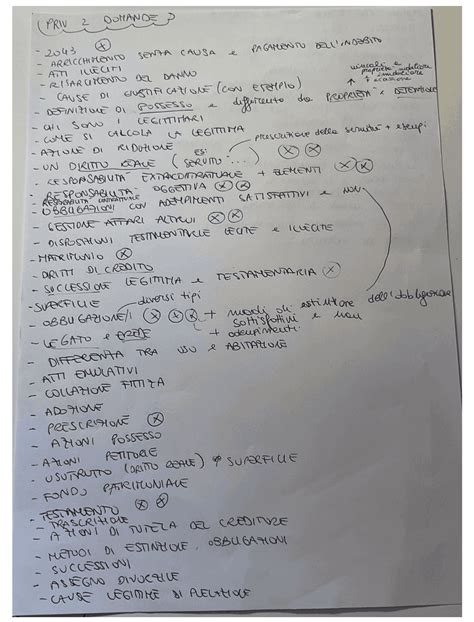 (PRIV 2 DOMANDE)
- 2043 (X)
- ARRICCHIMENTO SENZA CAUSA e PAGAMENTO DELL'INDEBITO
- ATTI ILLECITI
- RISARCIMENTO DEL DANNO
- CAUSE DI GIUSTIFICAZIONE (CON ESEMPIO)
- DEFINIZIONE DI POSSESSO e differenza da PROPRIETÀ e DETENZIONE
- CHI SONO I LEGITTIMARI
- COME SI CALCOLA LA LEGITTIMA
- AZIONE DI RIDUZIONE
prescrizione della servitù + esempi
- UN DIRITTO REALE (ES: SERVITÙ ...) (X) (X)
- RESPONSABILITÀ EXTRACONTRATTUALE + ELEMENTI (X)
- RESPONSABILITÀ OGGETTIVA (X) (X)
- RESPONSABILITÀ CONTRATTUALE
- OBBLIGAZIONI CON ADEMPIMENTI SATISFATTIVI e NON
- GESTIONE AFFARI ALTRUI (X) (X)
- DISPOSIZIONI TESTAMENTARIE LECITE e ILLECITE
- MATRIMONIO (X)
- DIRITTI DI CREDITO
- SUCCESSIONE LEGITTIMA e TESTAMENTARIA (X)
- SUPERFICIE
diversi tipi
- OBBLIGAZIONE/I (X) (X) (X) + modi di estinzione dell'obbligazione
satisfattivi e non
- LEGATO e EREDE + adempimenti
- DIFFERENZA TRA USO e ABITAZIONE
- ATTI EMULATIVI
- COLLAZIONE FITTIZIA
- ADOZIONE
- PRESCRIZIONE (X)
- AZIONI POSSESSO
- AZIONI PETITORIE
- USUFRUTTO (DIRITTO REALE) SUPERFICIE
- FONDO PATRIMONIALE
- TESTAMENTO (X) (X)
- TRASCRIZIONE
- AZIONI DI TUTELA DEL CREDITORE
- METODI DI ESTINZIONE OBBLIGAZIONI
- SUCCESSIONI
- ASSEGNO DIVORZILE
- CAUSE LEGITTIME DI PRELAZIONE